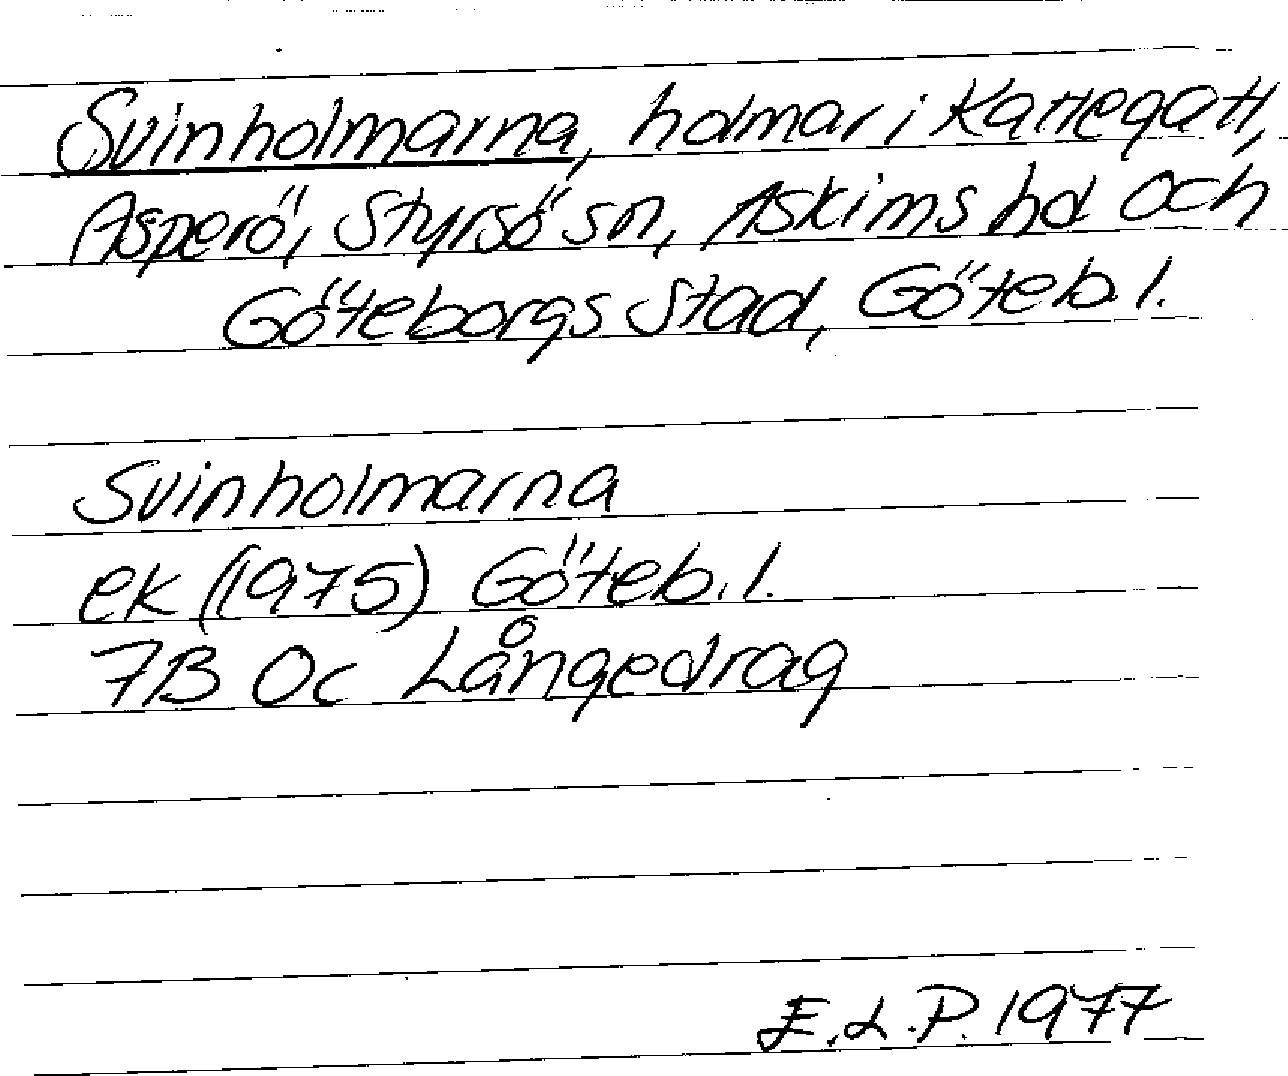 Svinholmarna, holmar i Kattegatt,
Asperö, Styrsö sn, Askims hd och
Göteborgs stad, Göteb. l.
Svinholmarna
ek (1975) Göteb. l.
7B 0c Långedrag
E.L.P. 1977